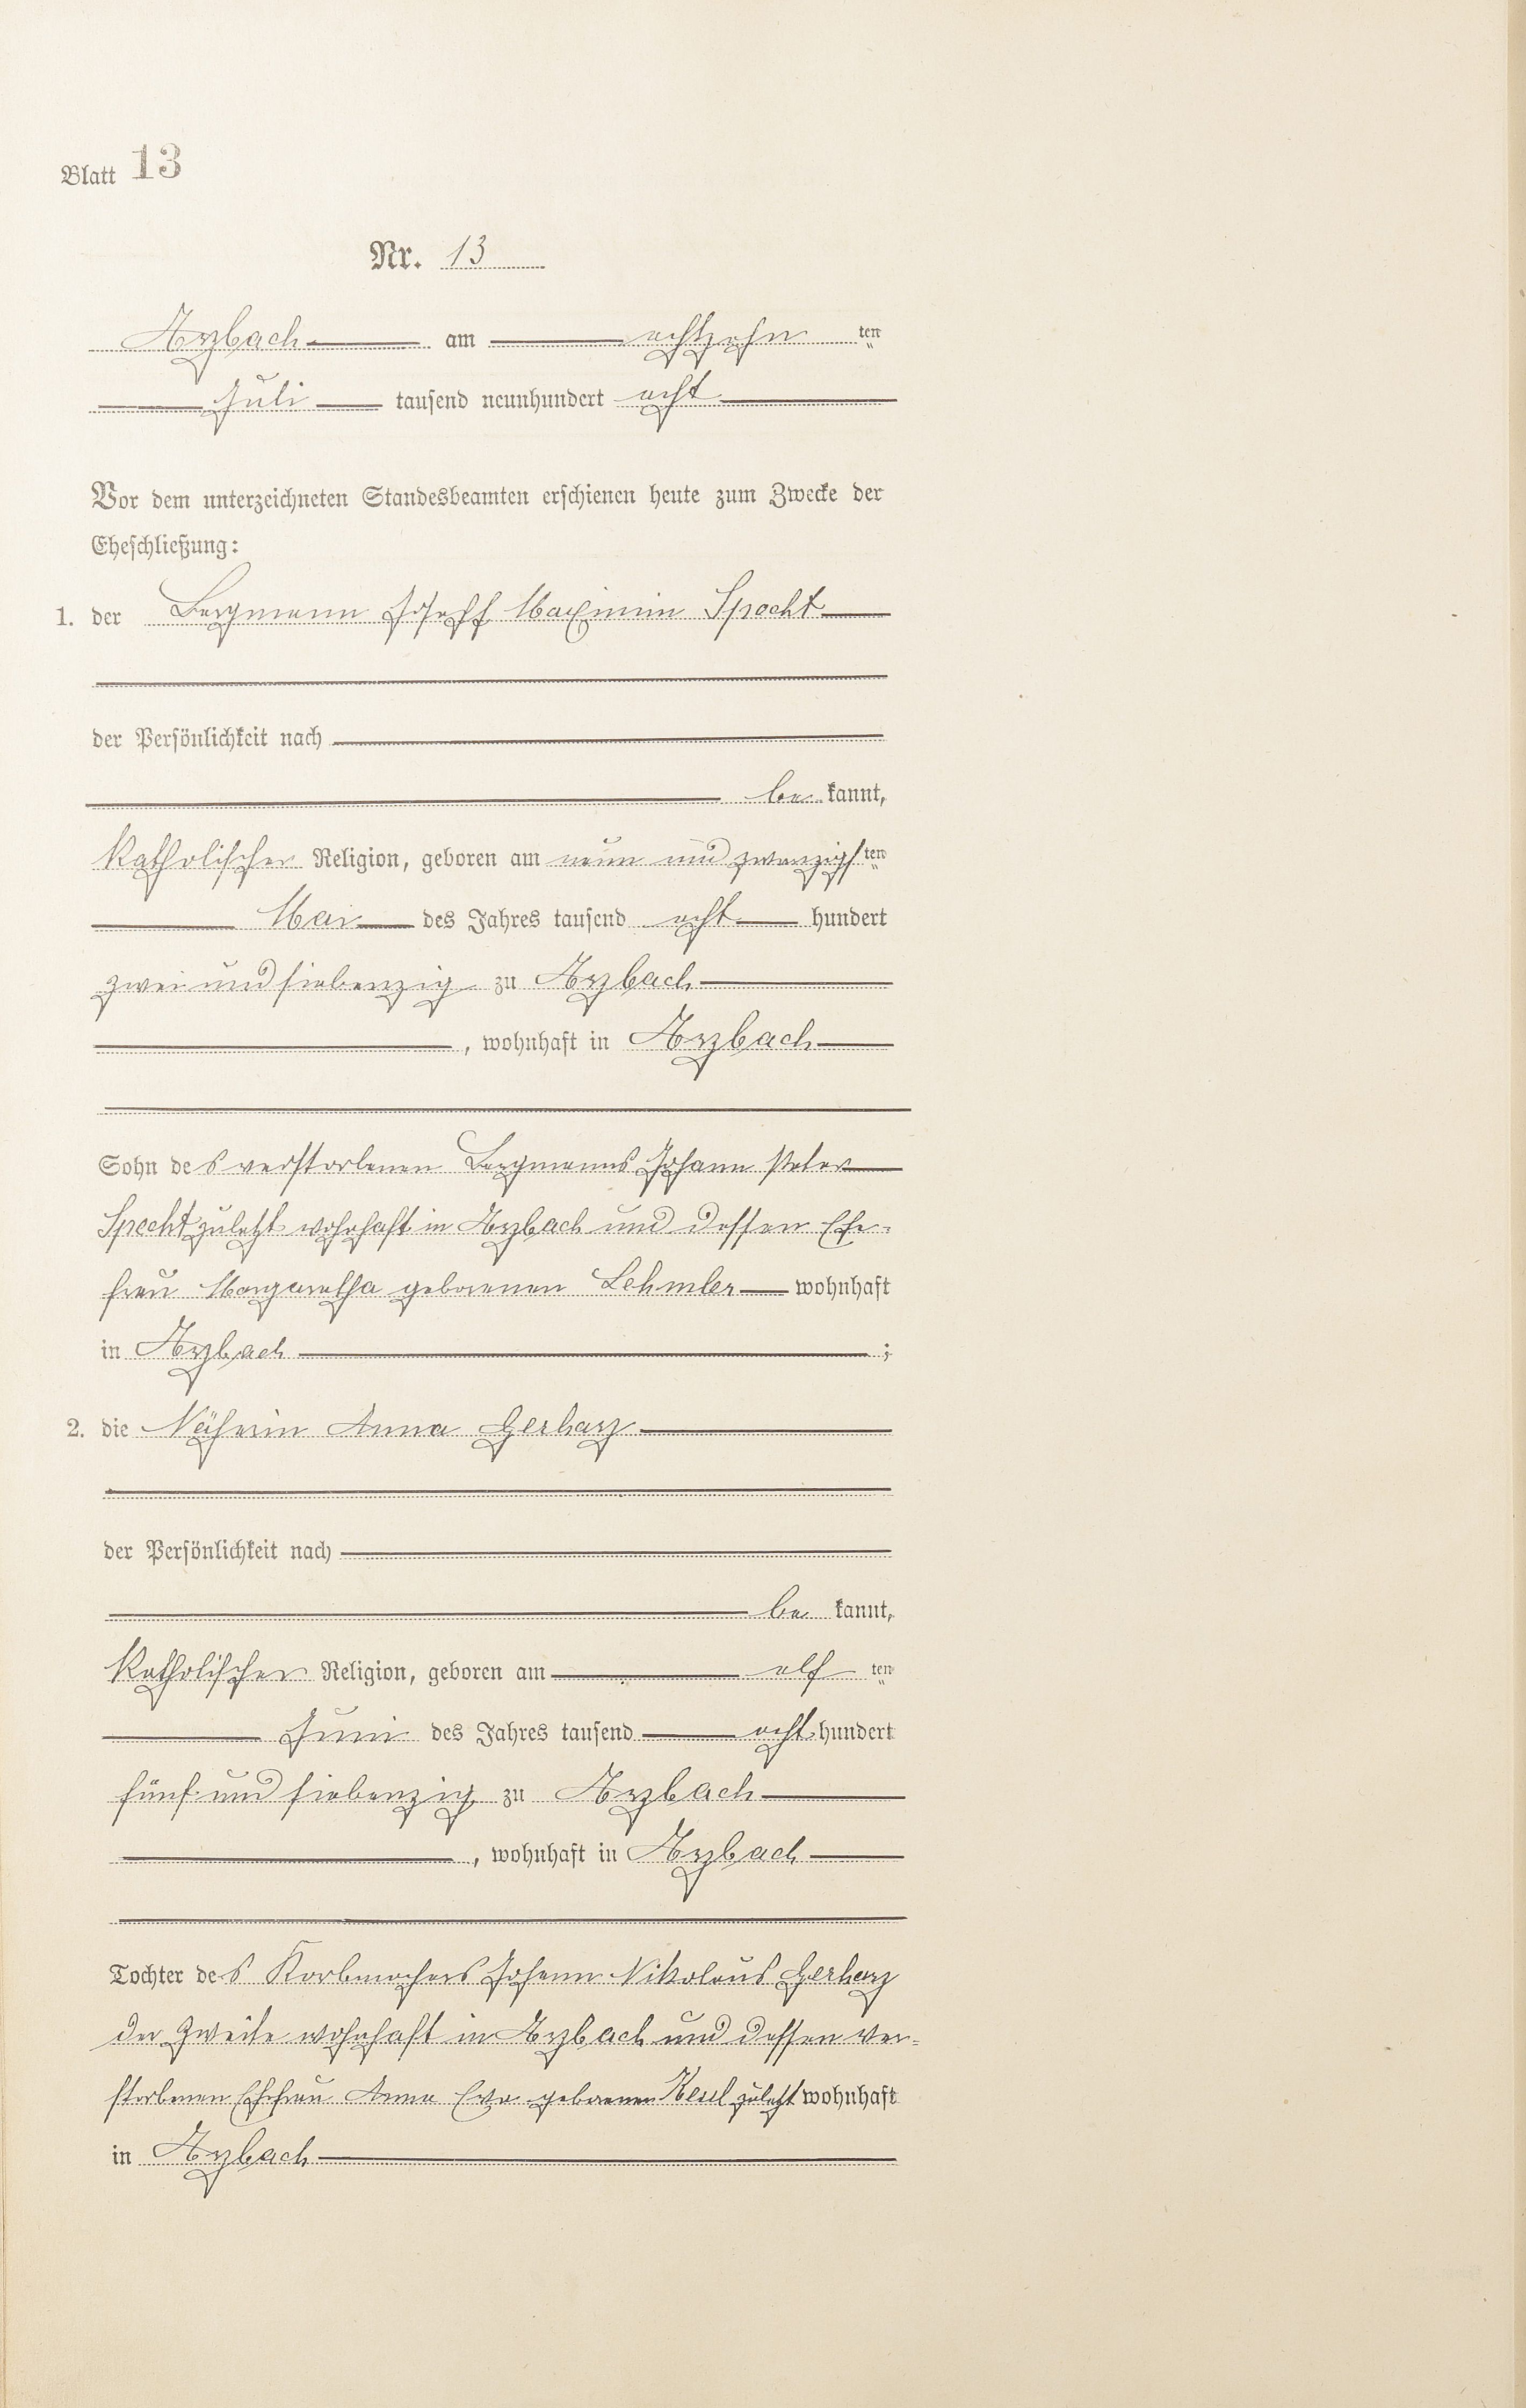 Blatt 13
Nr. 13
Arzbach am achtzehn ten
Juli tausend neunhundert acht
Vor dem unterzeichneten Standesbeamten erschienen heute zum Zwecke der
Eheschließung:
1. der Bergmann Joseph Maximin Specht
der Persönlichkeit nach
be kannt,
katholischer Religion, geboren am neun und zwanzigsten
Mai des Jahres tausend acht hundert
zwei und siebenzig zu Arzbach
, wohnhaft in Arzbach
Sohn des verstorbenen Bergmanns Johann Peter
Specht zuletzt wohnhaft in Arzbach und dessen Ehe-
frau Margaretha geborenen Lehmler wohnhaft
in Arzbach ;
2. die Näherin Anna Gerharz
der Persönlichkeit nach
be kannt,
katholischer Religion, geboren am elf ten
Juni des Jahres tausend acht hundert
fünf und siebenzig zu Arzbach
, wohnhaft in Arzbach
Tochter des Korbmachers Johann Nikolaus Gerharz
der Zweite wohnhaft in Arzbach und dessen ver-
storbenen Ehefrau Anna Eva geborenen Keul zuletzt wohnhaft
in Arzbach